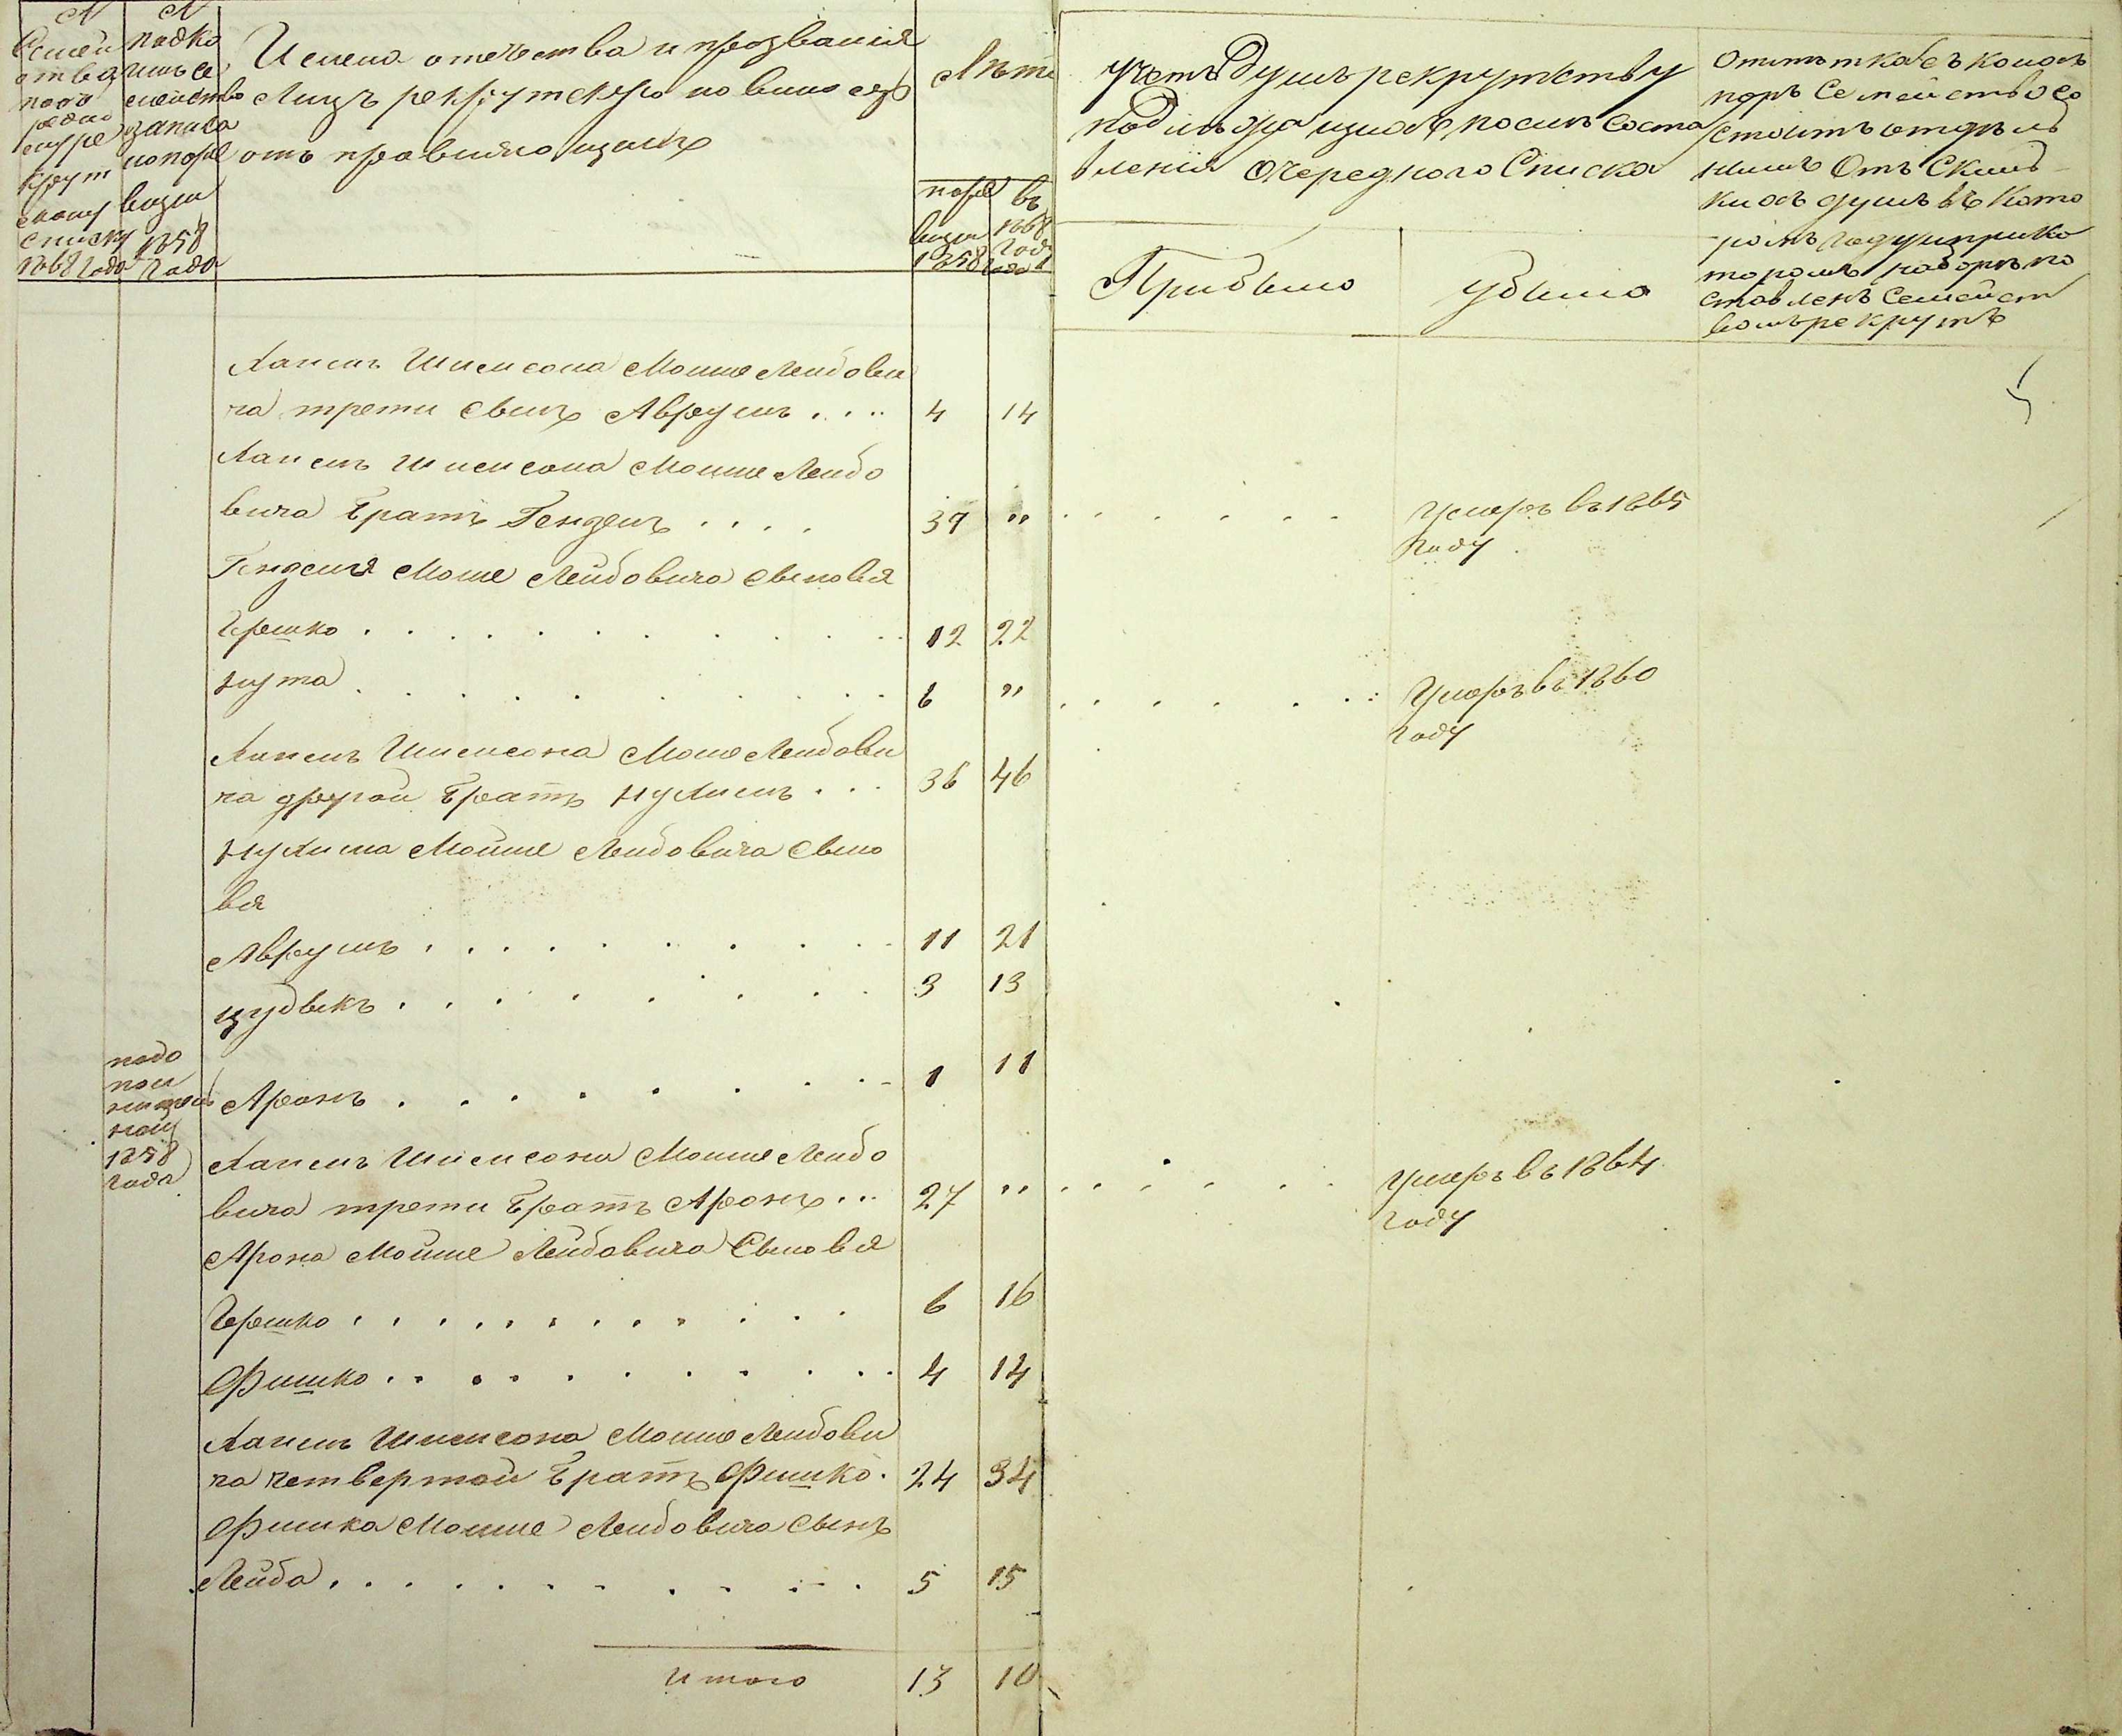 №
Семей
ства
по о
редно
му ре
крут
скому
списку
1868 года
№
подко
имъ се
мейство
записа
но по ре
визіи
1858
года
Имена отечества и прозванія
Лицъ рекрутскую повинность
отправляющихъ
Лѣта
по ре
визіи
1858
года
въ
1868
году
учетъ душъ рекрутству
подлежащ
вленія очереднаго Списка
Прибыло
убыло
Отмѣтка съ коихъ
поръ Семейство со
стоитъ отдѣль
нымъ Отъ Сколь
кихъ душъ въ Кото
ромъ году и при ко
торомъ наборѣ по
ставленъ Семейст
вомъ рекрутъ
Хаимъ Шимсона Мошко Лейбови
ча трети сынъ Аврумъ . . . . 4 14
Хаимъ Шимсона Мошко Лейбо
вича Братъ Гендель . . . . 39 " . . . . . . Умеръ въ 1865
году
Генделя Моше Лейбовича сыновья
Гершко . . . . . . . . . . 12 22
Нута . . . . . . . . . . 6 " . . . . . . Умеръ въ 1860
году
Хаимъ Шимсона Моше Лейбови
ча другой Братъ Нухимъ . . . 36 46
Нухима Мойше Лейбовича сыно
вья
Аврумъ . . . . . . . . . 11 21
Цудыкъ . . . . . . . . 3 13
подо
пол
нитель
ной
1858
года
Аронъ . . . . . . . . 1 11
Хаимъ Шимсона Мошко Лейбо
вича трети Братъ Аронъ . . . 27 " . . . . . . умеръ въ 1864
году
Арона Мойше Лейбовича Сыновья
Гершко . . . . . . . . . . 6 16
Фишко . . . . . . . . . . 4 14
Хаимъ Шимсона Мошко Лейбови
ча четвертой Братъ Фишко . 24 34
Фишка Мошко Лейбовича сынъ
Лейба . . . . . . . . . . 5 15
Итого 13 10